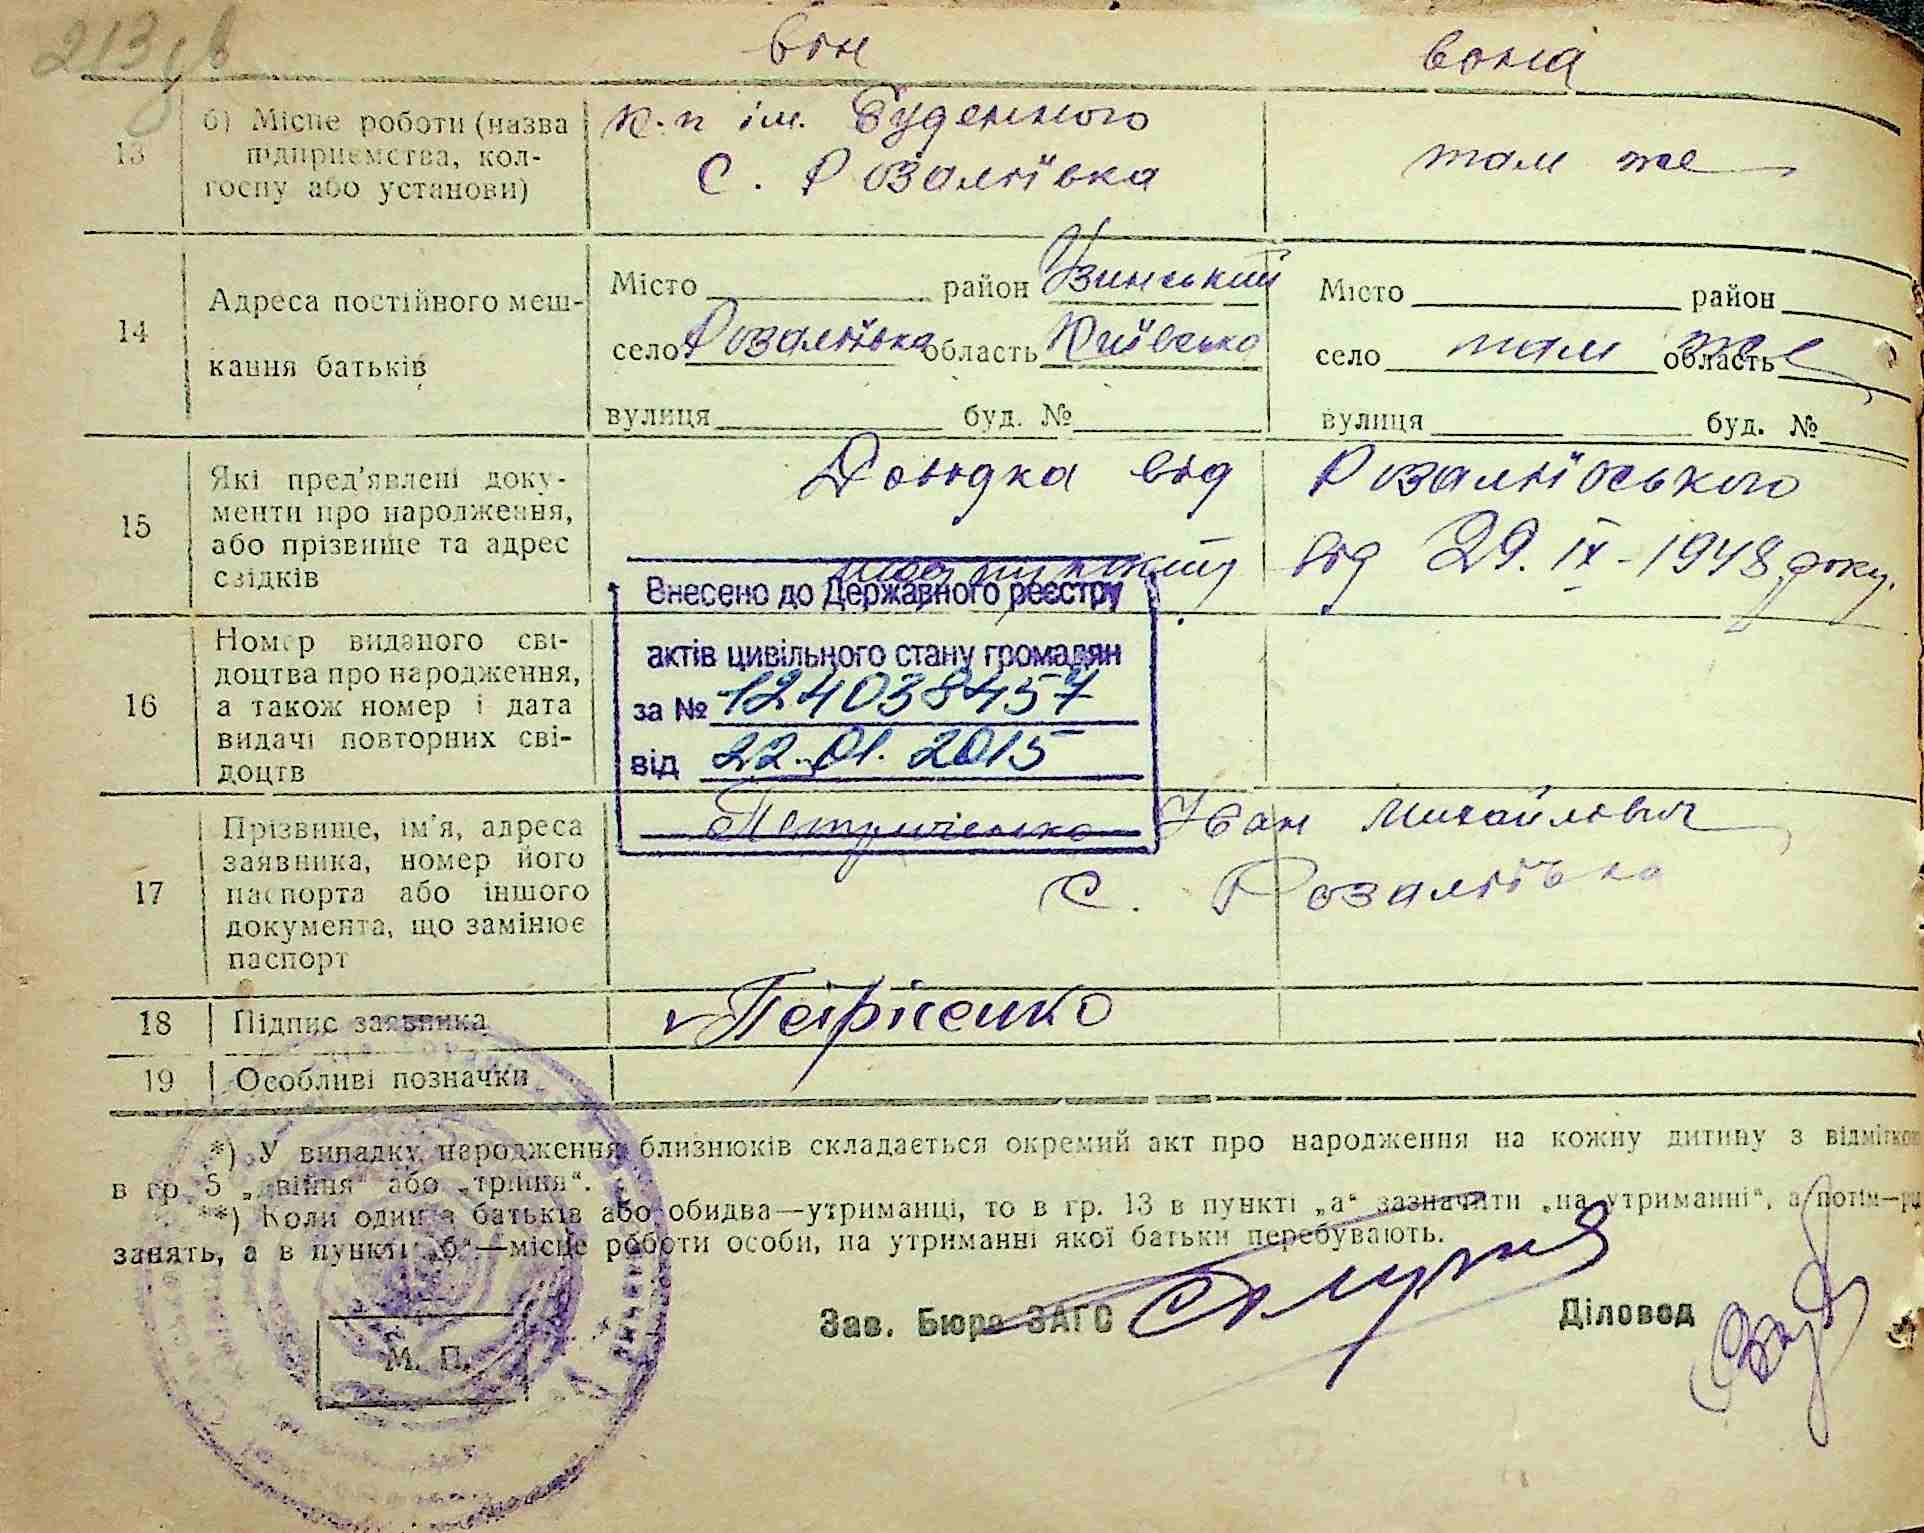 213 зв
він вона
13 б) Місце роботи (назва підприємства, колгоспу або установи)
к-п ім. Буденного
с. Розаліївка
там же
14 Адреса постійного мешкання батьків
Місто район Узинський
село Розаліївка область Київсько
вулиця буд. №
Місто район
село там же область
вулиця буд. №
15 Які пред'явлені документи про народження, або прізвище та адрес свідків
Довідка від Розаліївського
від 29. ІХ - 1948 року.
Внесено до Державного реєстру
актів цивільного стану громадян
за № 124038457
від 22.01.2015
16 Номер виданого свідоцтва про народження, а також номер і дата видачі повторних свідоцтв
17 Прізвище, ім'я, адреса заявника, номер його паспорта або іншого документа, що замінює паспорт
Петриченко Іван Михайлович
с. Розаліївка
18 Підпис заявника
19 Особливі позначки
*) У випадку народження близнюків складається окремий акт про народження на кожну дитину з відміткою
в гр. 5 „двійня“ або „трійня“.
**) Коли один з батьків або обидва—утриманці, то в гр. 13 в пункті „а“ зазначити „на утриманні“, а потім—
занять, а в пункті „б“—місце роботи особи, на утриманні якої батьки перебувають.
Зав. Бюро ЗАГС Діловод
М. П.